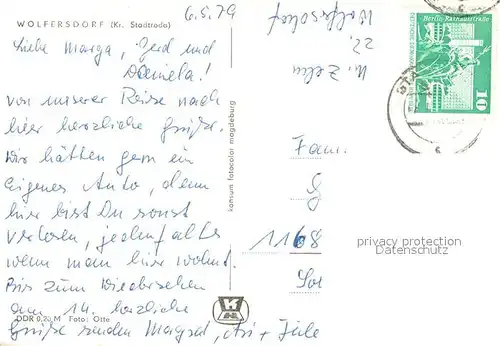 WOLFERSDORF (Kr. Stadtroda)
6.5.79
Liebe Marga, Gerd und
Daniela!
von unserer Reise nach
hier herzliche Grüße.
Wir hätten gern ein
Eigenes Auto, denn
hier bist Du sonst
verlosen, jedenfalls
wenn man hier wohnt.
Bis zum Wiedersehen
am 14. herzliche
Grüße senden
DDR 0,20 M Foto: Otte
konsum fotocolor magdeburg
K
Berlin, Rathausstraße
10
Fam.
G
1168
privacy protection
Datenschutz